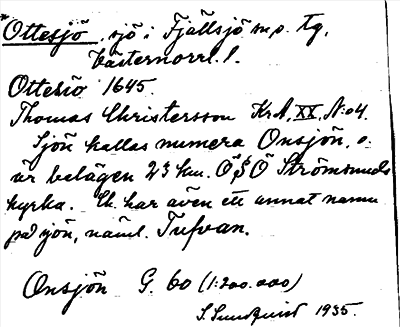 *Ottesjö, sjö i Fjällsjö m.p. tg,
Västernorrl. l.
Ottesiö 1645.
Thomas Christersson KrA, XX, N:o 4.
Sjön kallas numera Onsjön, o.
är belägen 23 km. Ö S Ö Strömsunds
kyrka. Ek. har även ett annat namn
på sjön, näml. Tufvan.
Onsjön G. 60 (1:200.000)
S. Sundquist 1935.